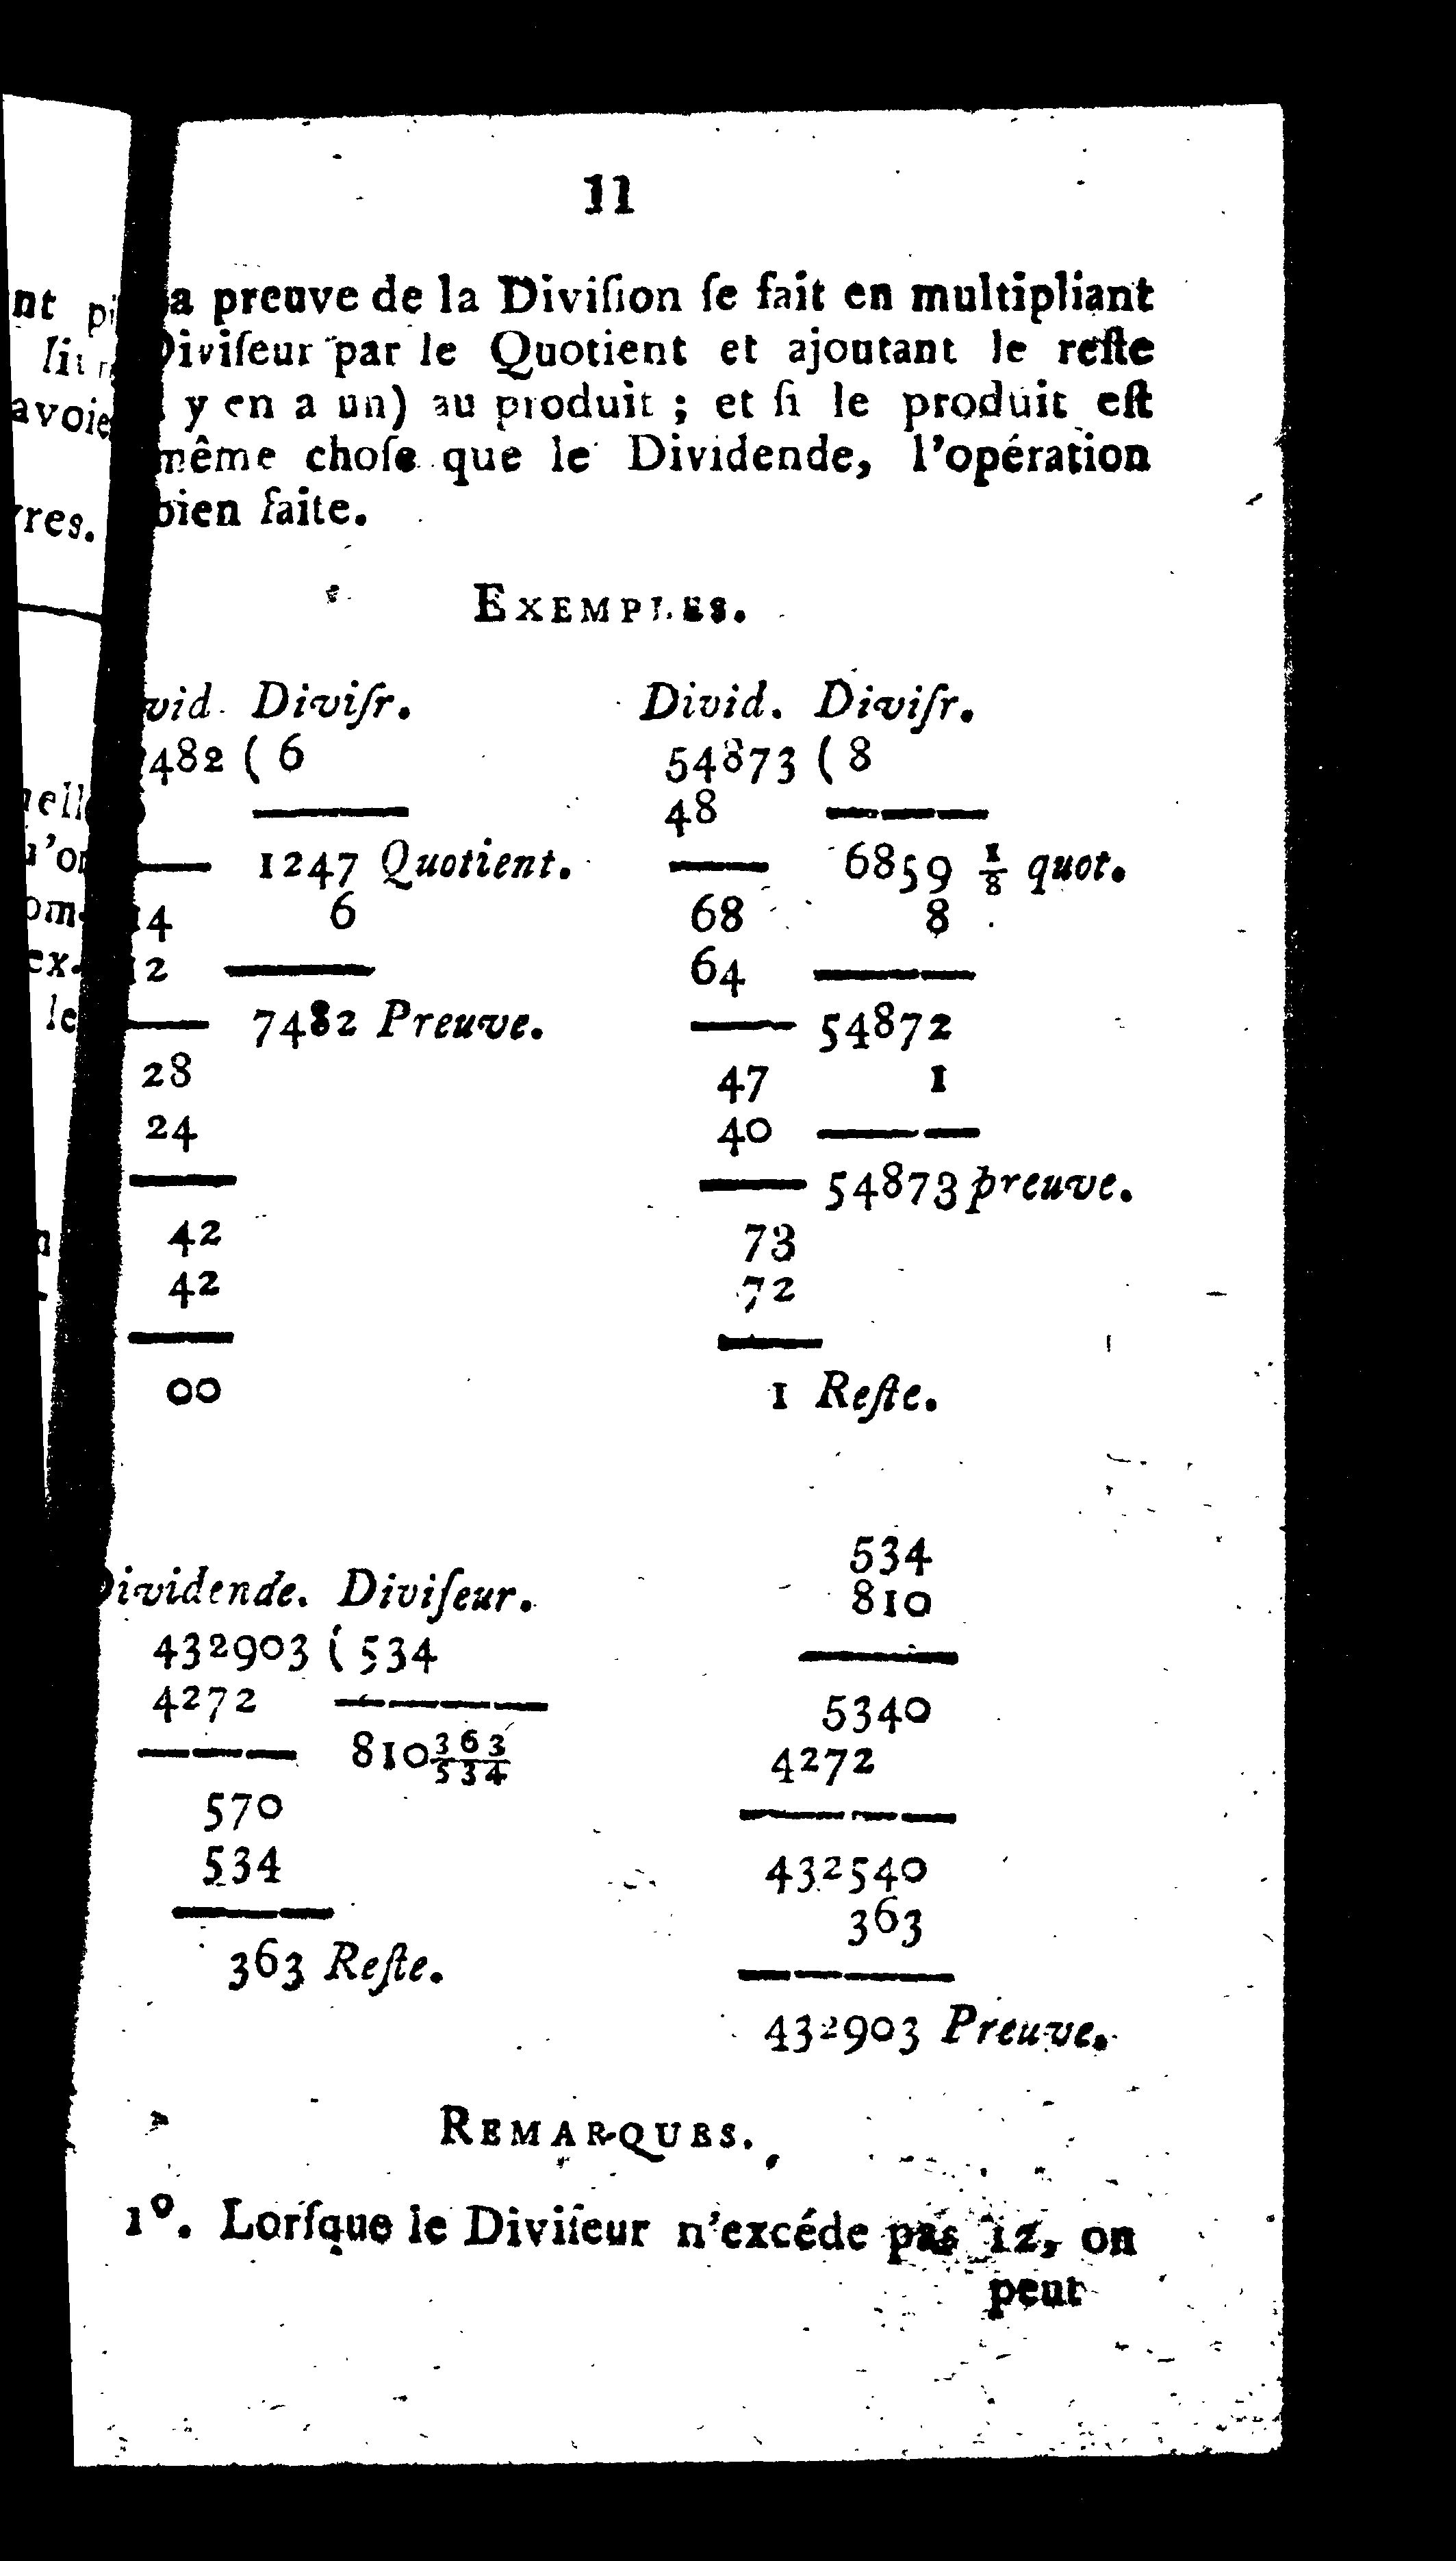 11
a preuve de la Diviſion ſe fait en multipliant
iviſeur par le Quotient et ajoutant le reſte
y en a un) au produit ; et ſi le produit eſt
même choſe que le Dividende, l'opération
bien faite.
EXEMPLES.
vid. Diviſr.
482 ( 6
1247 Quotient.
4 6
2
7482 Preuve.
28
24
42
42
00
Divid. Diviſr.
54873 ( 8
48
6859 1/8 quot.
68 8
64
54872
47 1
40
54873 preuve.
73
72
1 Reſte.
Dividende. Diviſeur.
432903 ( 534
4272
810 363/534
570
534
363 Reſte.
534
810
5340
4272
432540
363
432903 Preuve.
REMARQUES.
1º. Lorſque le Diviſeur n'excéde pas 12, on
peut